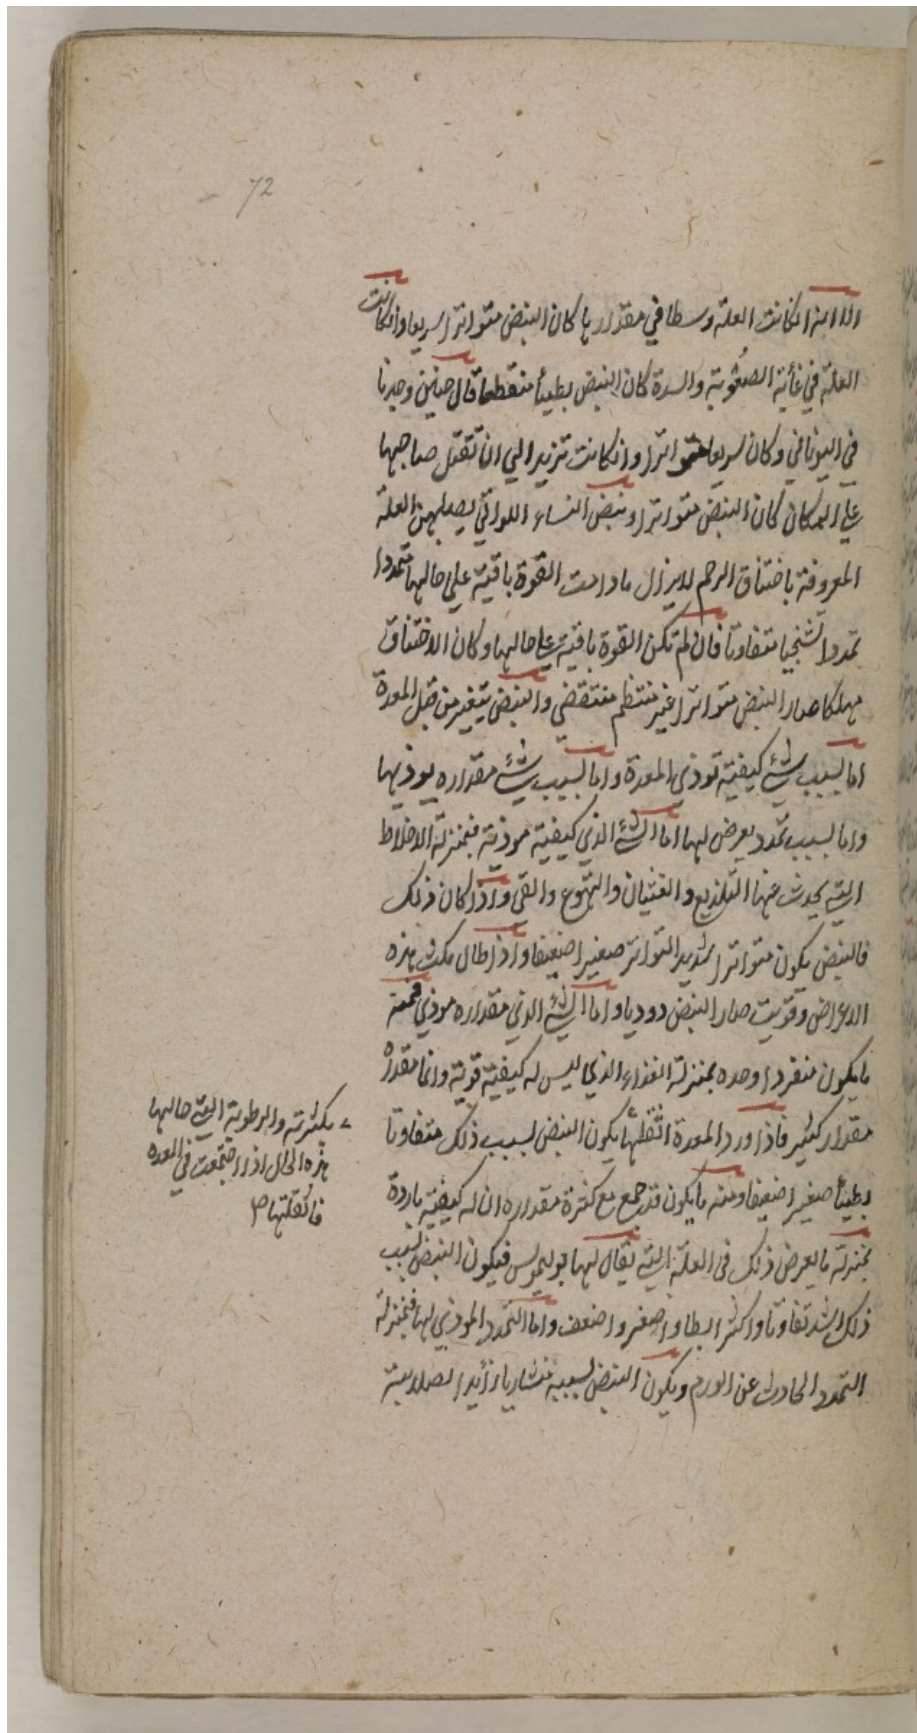 72
الا انه انكانت العلة وسطا في مقدارها كان النبض متواترا سريعا وانكانت
العلة في غاية الصعوبة والشدة كان النبض بطيئا منقطعا قال حنين وجدنا
في اليوناني وكان سريعا متواترا وانكانت تزيد الي ان تقتل صاحبها
علي المكان كان النبض متواترا ونبض النساء اللواتي يصيبهن العلة
المعروفة باختناق الرحم لايزال مادامت القوة باقية علي حالها متمددا
تمددا تشنجيا متفاوتا فان لم تكن القوة باقية علي حالها وكان الاختناق
مهلكا صار النبض متواترا غير منتظم منتقضي والنبض يتغير من قبل المعدة
اما لسبب شئ كيفيته توذي المعدة واما لسبب شئ مقداره يوذيها
واما لسبب تمدد يعرض لها اما الشئ الذي كيفيته موذية فبمنزلة الاخلاط
التي يحدث عنها التلذيع والغثيان والتهوع والقي واذا كان ذلك
فالنبض يكون متواترا شديد التواتر صغيرا ضعيفا واذا طال مكث هذه
الاعراض وقويت صار النبض دوديا واما الشئ الذي مقداره موذي فمنه
مايكون منفردا وحده بمنزلة الغذاء الذي ليس له كيفية قوية وانما مقداره
مقدار كثير فاذا ورد المعدة اثقلها يكون النبض لسبب ذلك متفاوتا
بطيئا صغيرا ضعيفا ومنه مايكون قد جمع مع كثرة مقداره ان له كيفية باردة
بمنزلة مايعرض ذلك في العلة التي يقال لها بوليموس فيكون النبض لسبب
ذلك اشد تفاوتا واكثر ابطا واصغر واضعف واما التمدد الموذي لها فبمنزلة
التمدد الحادث عن الورم ويكون النبض لسببه منشاريا زائد الصلابة
بكثرته والرطوبة التي حالها
هذه الحال اذا اجتمعت في المعده
فاثقلتها